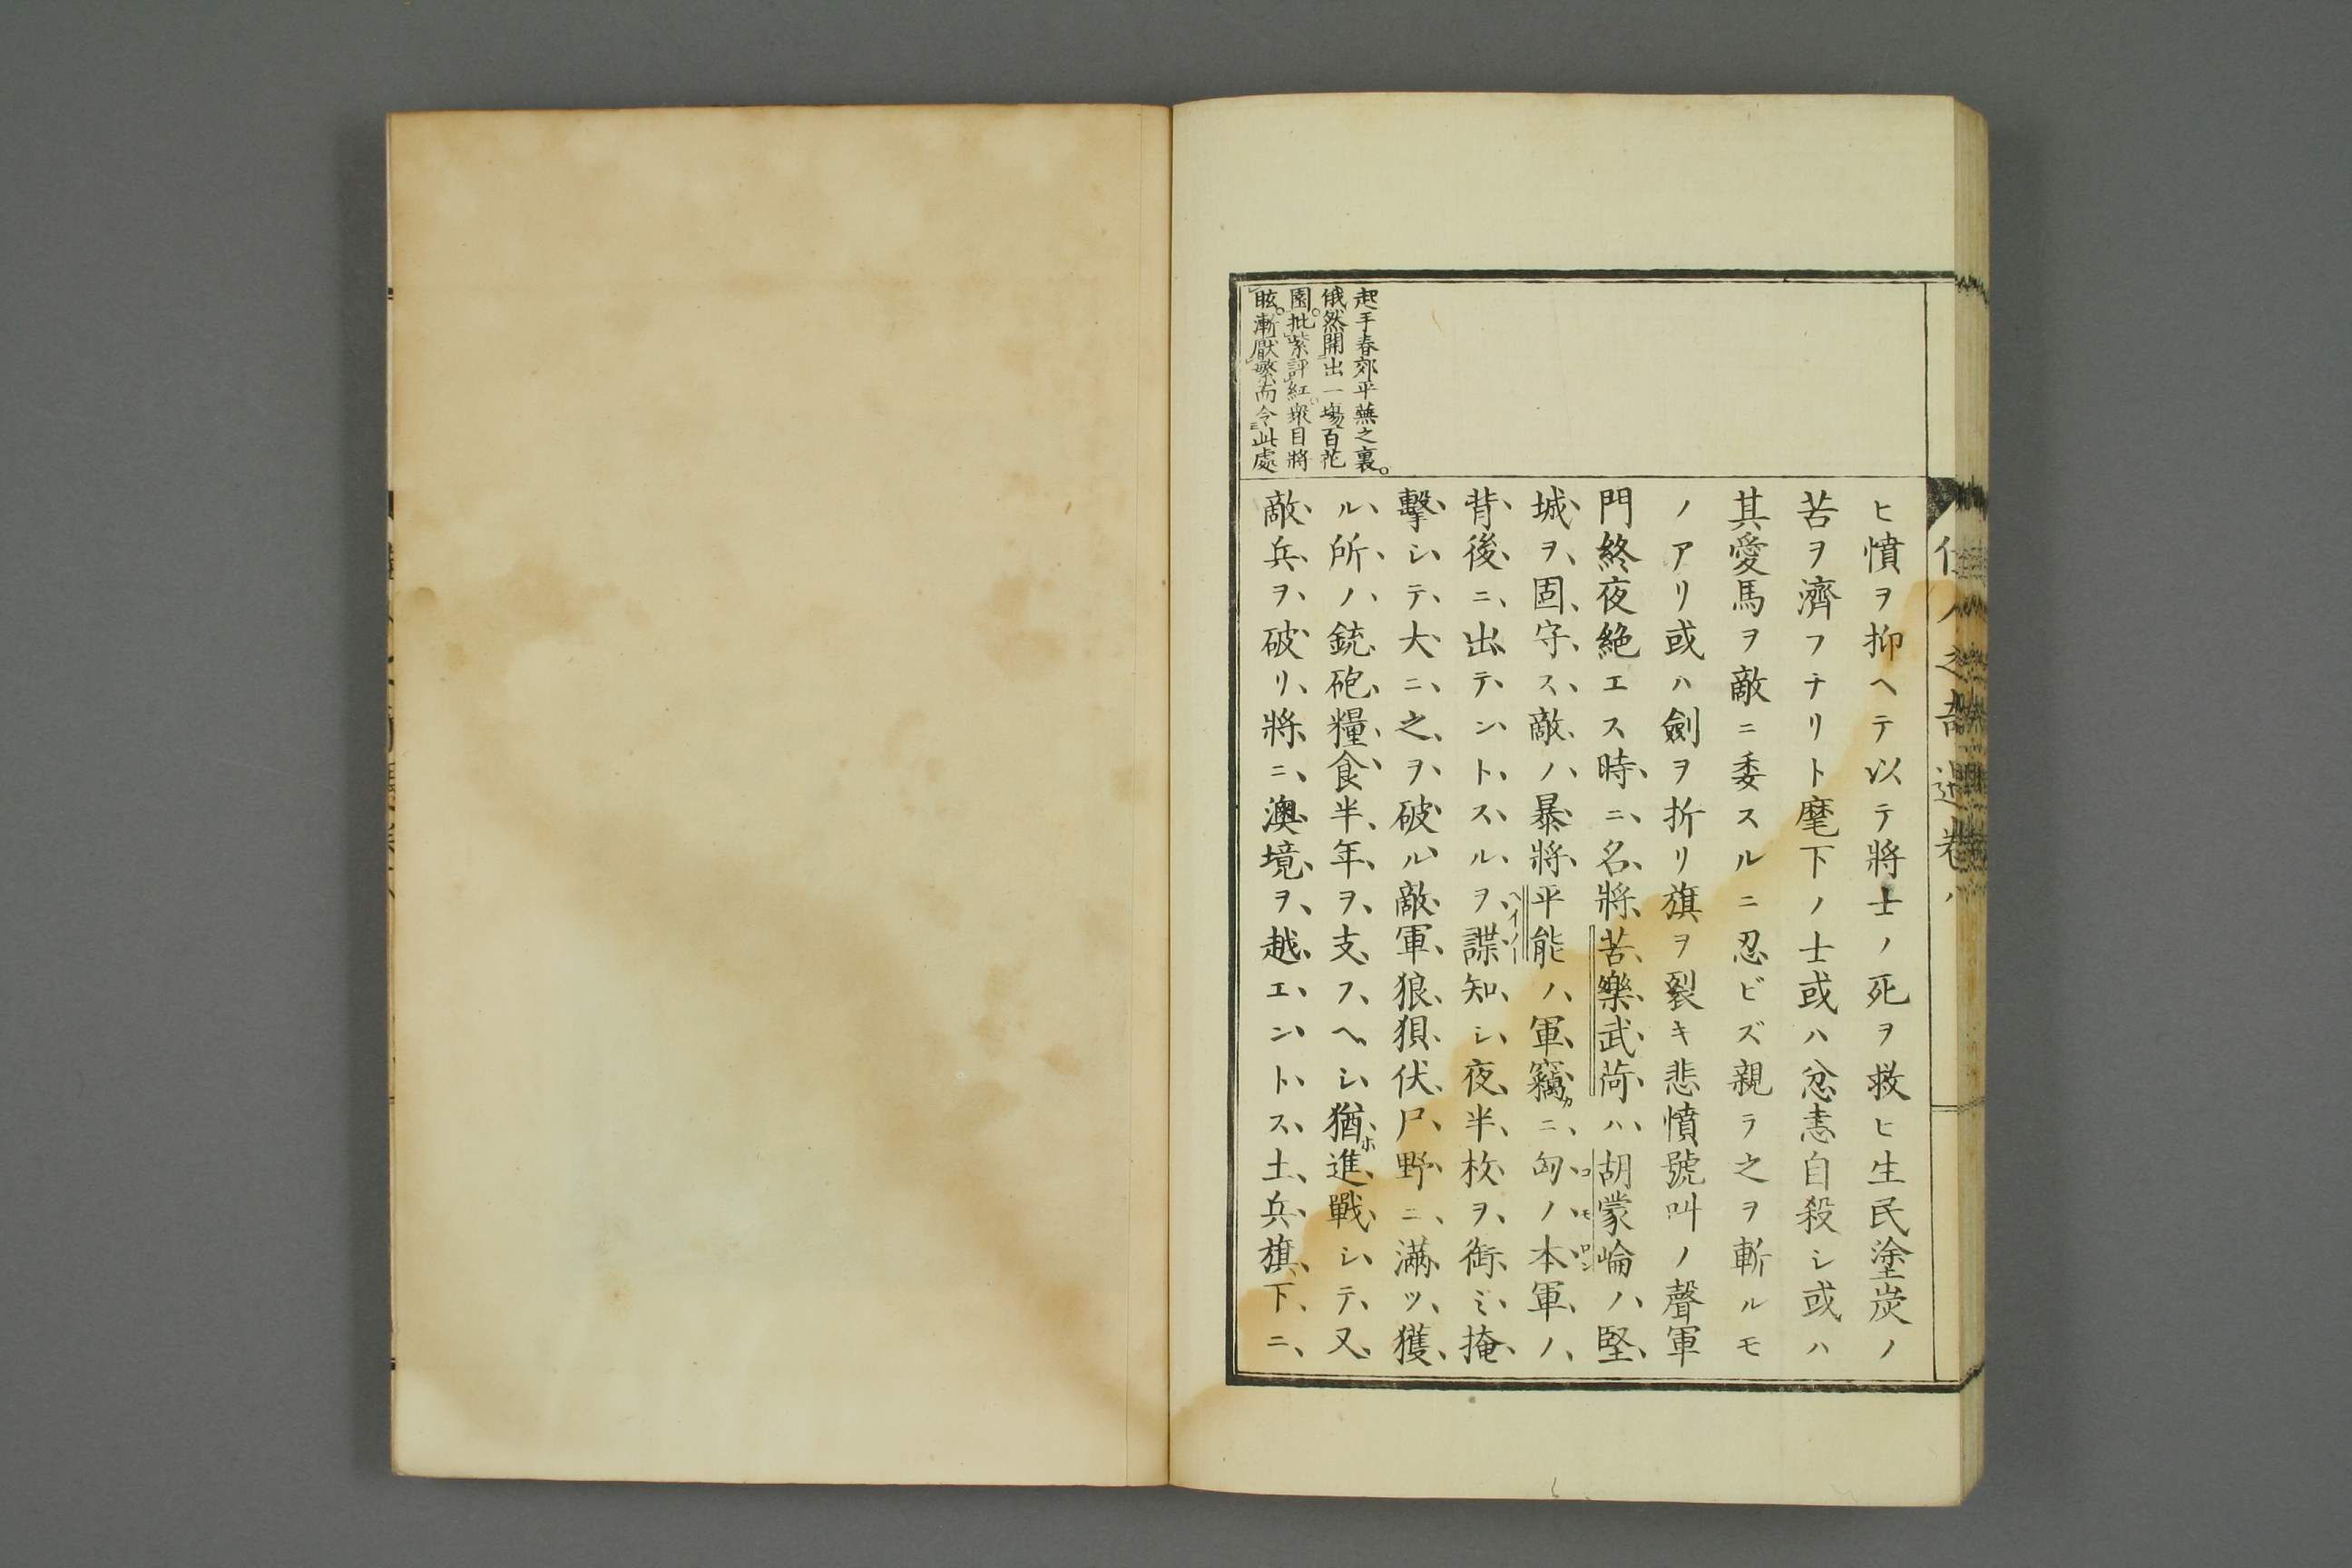 ヒ憤ヲ抑ヘテ以テ將士ノ死ヲ救ヒ生民塗炭ノ
苦ヲ濟フナリト麾下ノ士或ハ忿恚自殺シ或ハ
其愛馬ヲ敵ニ委スルニ忍ビズ親ラ之ヲ斬ルモ
ノアリ或ハ劍ヲ折リ旗ヲ裂キ悲憤號叫ノ聲軍
門終夜絶エス時ニ名將苦樂武荷ハ胡蒙崘ノ堅
コモロン
城ヲ固守ス敵ノ暴將平能ノ軍竊カニ匈ノ本軍ノ
ヘイノー
背後ニ出テントスルヲ諜知シ夜半枚ヲ銜ミ掩
擊シテ大ニ之ヲ破ル敵軍狼狽伏尸野ニ滿ツ獲
ル所ノ銃砲糧食半年ヲ支フヘシ猶ホ進戰シテ又
敵兵ヲ破リ將ニ澳境ヲ越エントス土兵旗下ニ
起手春郊平蕪之裏。
俄然開出一場百花
園。批紫評紅。衆目將
眩。漸厭繁而令此處